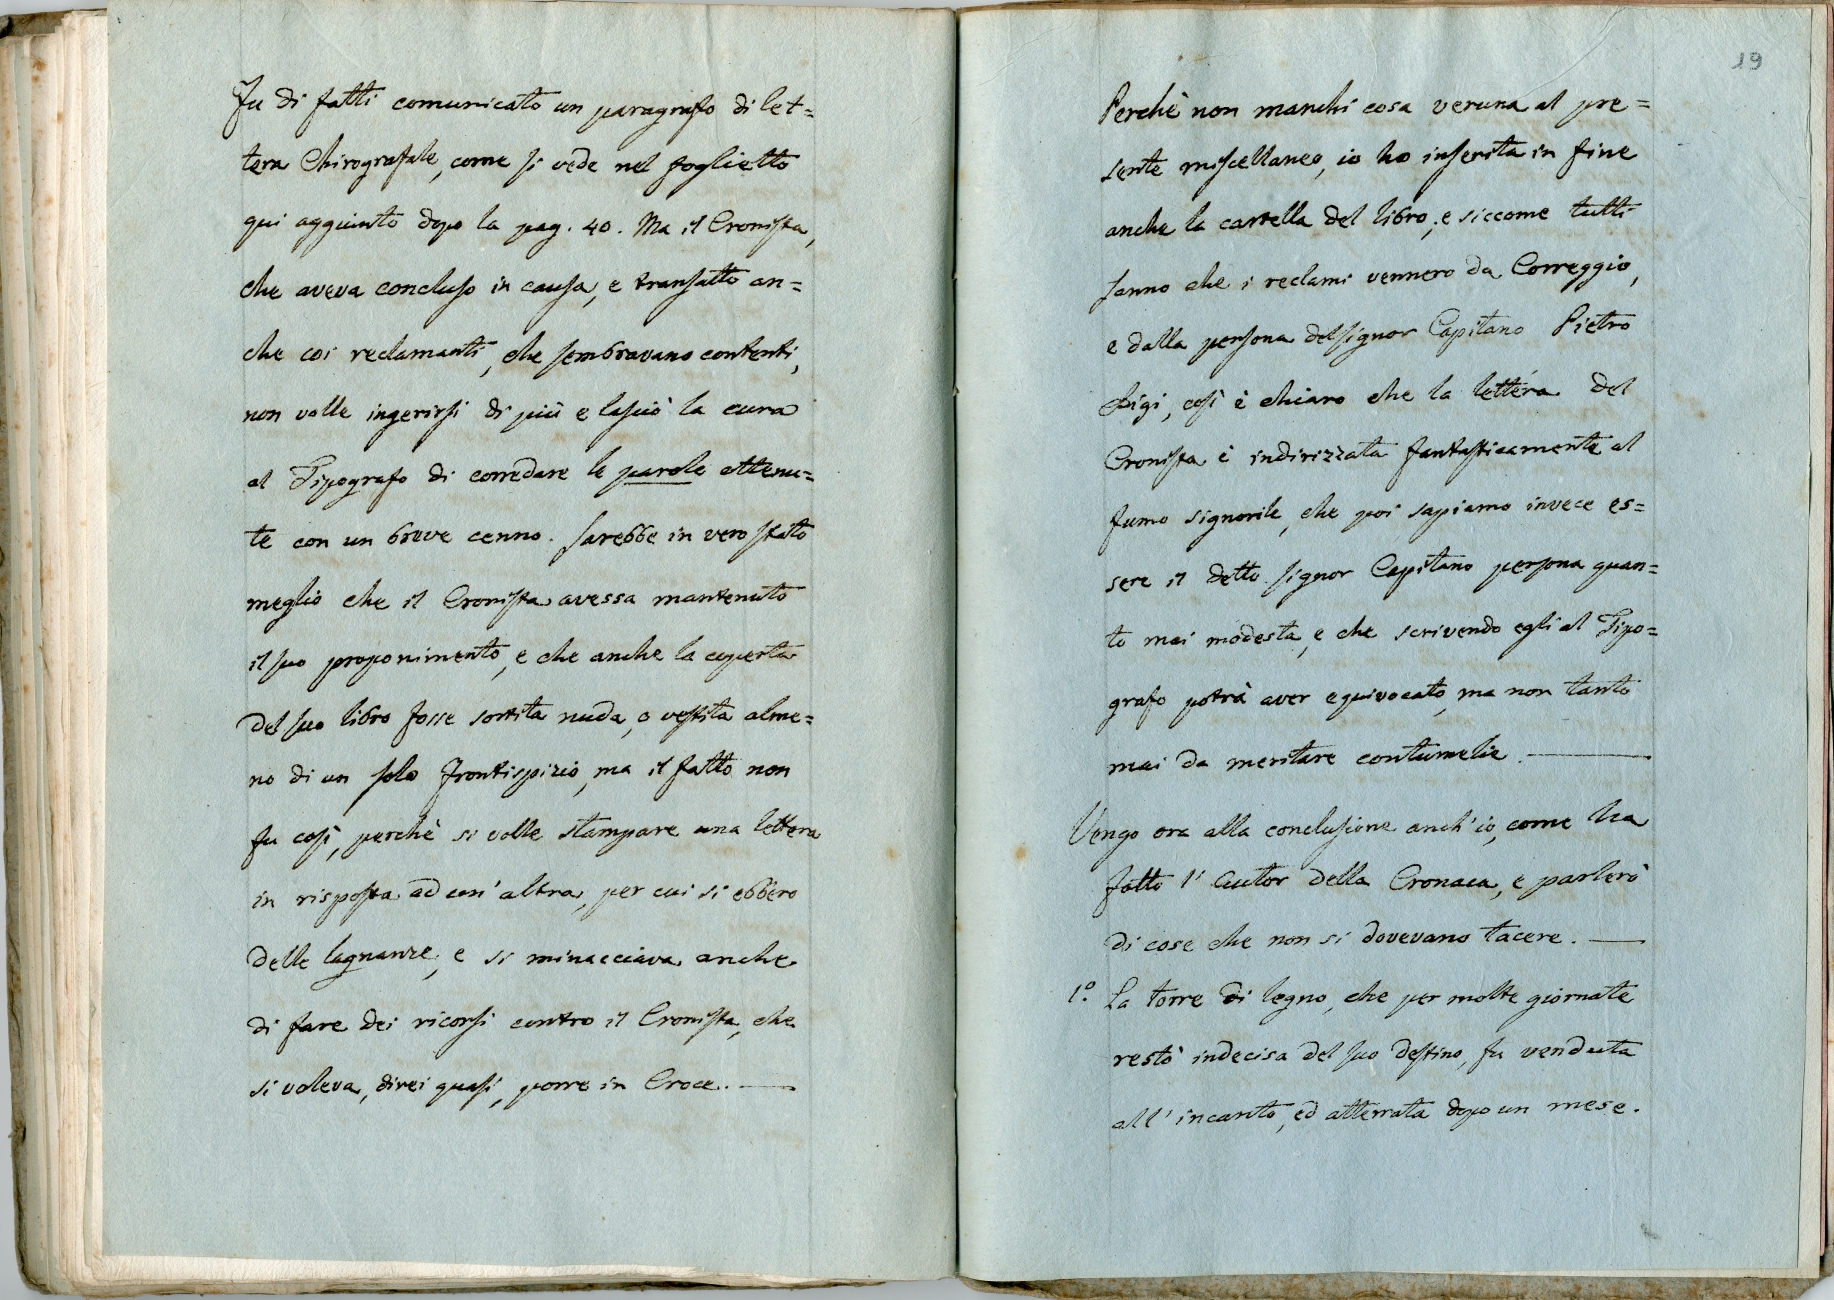 Fu di fatti comunicato un paragrafo di let=
tera Chirografale, come si vede nel foglietto
qui aggiunto dopo la pag. 40. Ma il Cronista,
che aveva concluso in causa, e transatto an=
che coi reclamanti, che sembravano contenti,
non volle ingerirsi di più e lasciò la cura
al Tipografo di corredare le parole ottenu=
te con un breve cenno. Sarebbe in vero stato
meglio che il Cronista avessa mantenuto
il suo proponimento, e che anche la coperta
del suo libro fosse sortita nuda, o vestita alme=
no di un solo frontispizio, ma il fatto non
fu così, perchè si volle stampare una lettera
in risposta ad un' altra, per cui si ebbero
delle lagnanze, e si minacciava anche
di fare dei ricorsi contro il Cronista, che
si voleva, direi quasi, porre in Croce.
19
Perchè non manchi cosa veruna al pre=
sente miscellaneo, io ho inserita in fine
anche la cartella del libro; e siccome tutti
sanno che i reclami vennero da Correggio,
e dalla persona del signor Capitano Pietro
Bigi, così è chiaro che la lettera del
Cronista è indirizzata fantasticamente al
fumo signorile, che poi sapiamo invece es=
sere il detto signor Capitano persona quan=
to mai modesta, e che scrivendo egli al Tipo=
grafo potrà aver equivocato, ma non tanto
mai da meritare contumelie.
Vengo ora alla conclusione anch' io, come ha
fatto l' Autor della Cronaca, e parlerò
di cose che non si dovevano tacere.
1º. La torre di legno, che per molte giornate
restò indecisa del suo destino, fu venduta
all' incanto, ed atterrata dopo un mese.